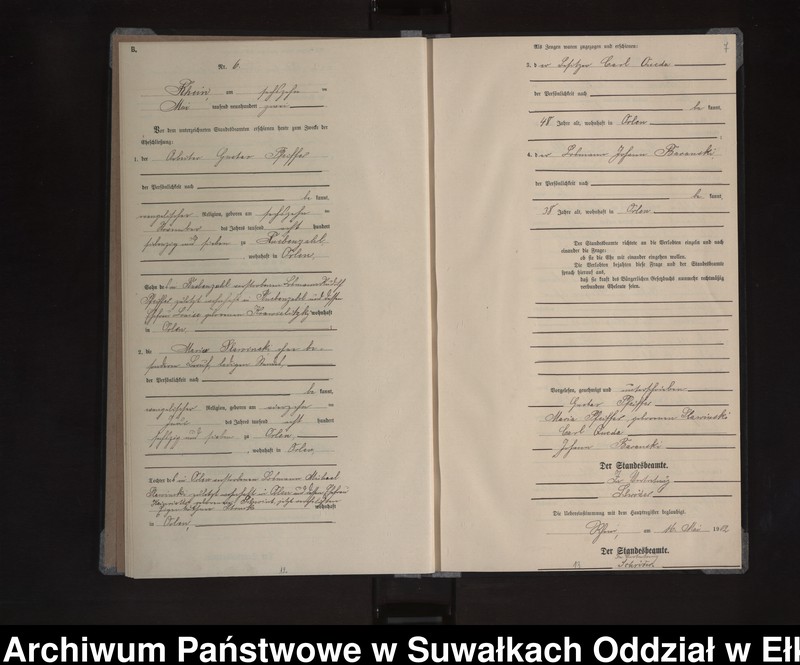 B.
Nr. 6
Rhein, am sechszehn ten
Mai tausend neunhundert zwei
Vor dem unterzeichneten Standesbeamten erschienen heute zum Zwecke der
Eheschließung:
1. der Arbeiter Gustav Pfeiffer
der Persönlichkeit nach
be kannt,
evangelischer Religion, geboren am sechszehn ten
November des Jahres tausend acht hundert
siebenzig und sieben zu Rübenzahl
, wohnhaft in Orlen
Sohn des in Rübenzahl verstorbenen Lohmanns
Pfeiffer zuletzt wohnhaft in Rübenzahl und dessen
Ehefrau Louise geborenen wohnhaft
in Orlen
2. die Maria Slawinski ohne be-
sonderen Beruf, ledigen Standes,
der Persönlichkeit nach
be kannt,
evangelischer Religion, geboren am vierzehn ten
des Jahres tausend acht hundert
sechszig und sieben zu Orlen
, wohnhaft in Orlen
Tochter des in Orlen verstorbenen Lohmanns Michael
Slawinski zuletzt wohnhaft in Orlen und dessen Ehefrau
geborenen jetzt
wohnhaft
in Orlen
Als Zeugen waren zugezogen und erschienen:
7
3. der Besitzer Carl Queda
der Persönlichkeit nach
be kannt,
48 Jahre alt, wohnhaft in Orlen
4. der Lohmann Johann Baranski
der Persönlichkeit nach
be kannt,
38 Jahre alt, wohnhaft in Orlen
Der Standesbeamte richtete an die Verlobten einzeln und nach
einander die Frage:
ob sie die Ehe mit einander eingehen wollen.
Die Verlobten bejahten diese Frage und der Standesbeamte
sprach hierauf aus,
daß sie kraft des Bürgerlichen Gesetzbuchs nunmehr rechtmäßig
verbundene Eheleute seien.
Vorgelesen, genehmigt und unterschrieben
Gustav Pfeiffer
Maria Pfeiffer geborenen Slawinski
Carl Queda
Johann Baranski
Der Standesbeamte.
In Vertretung
Schröder
Die Uebereinstimmung mit dem Hauptregister beglaubigt.
Rhein, am 16. Mai 1902
Der Standesbeamte.
In Vertretung
Schröder
Archiwum Państwowe w Suwałkach Oddział w Ełk